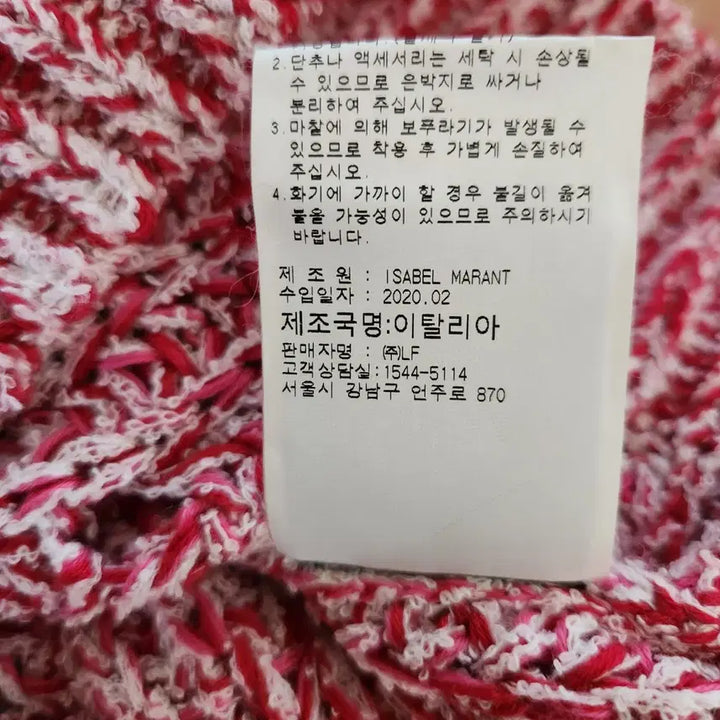 2.단추나 액세서리는 세탁 시 손상될
수 있으므로 은박지로 싸거나
분리하여 주십시오.
3.마찰에 의해 보푸라기가 발생될 수
있으므로 착용 후 가볍게 손질하여
주십시오.
4.화기에 가까이 할 경우 불길이 옮겨
붙을 가능성이 있으므로 주의하시기
바랍니다.
제 조 원 : ISABEL MARANT
수입일자 : 2020.02
제조국명:이탈리아
판매자명 : ㈜LF
고객상담실:1544-5114
서울시 강남구 언주로 870